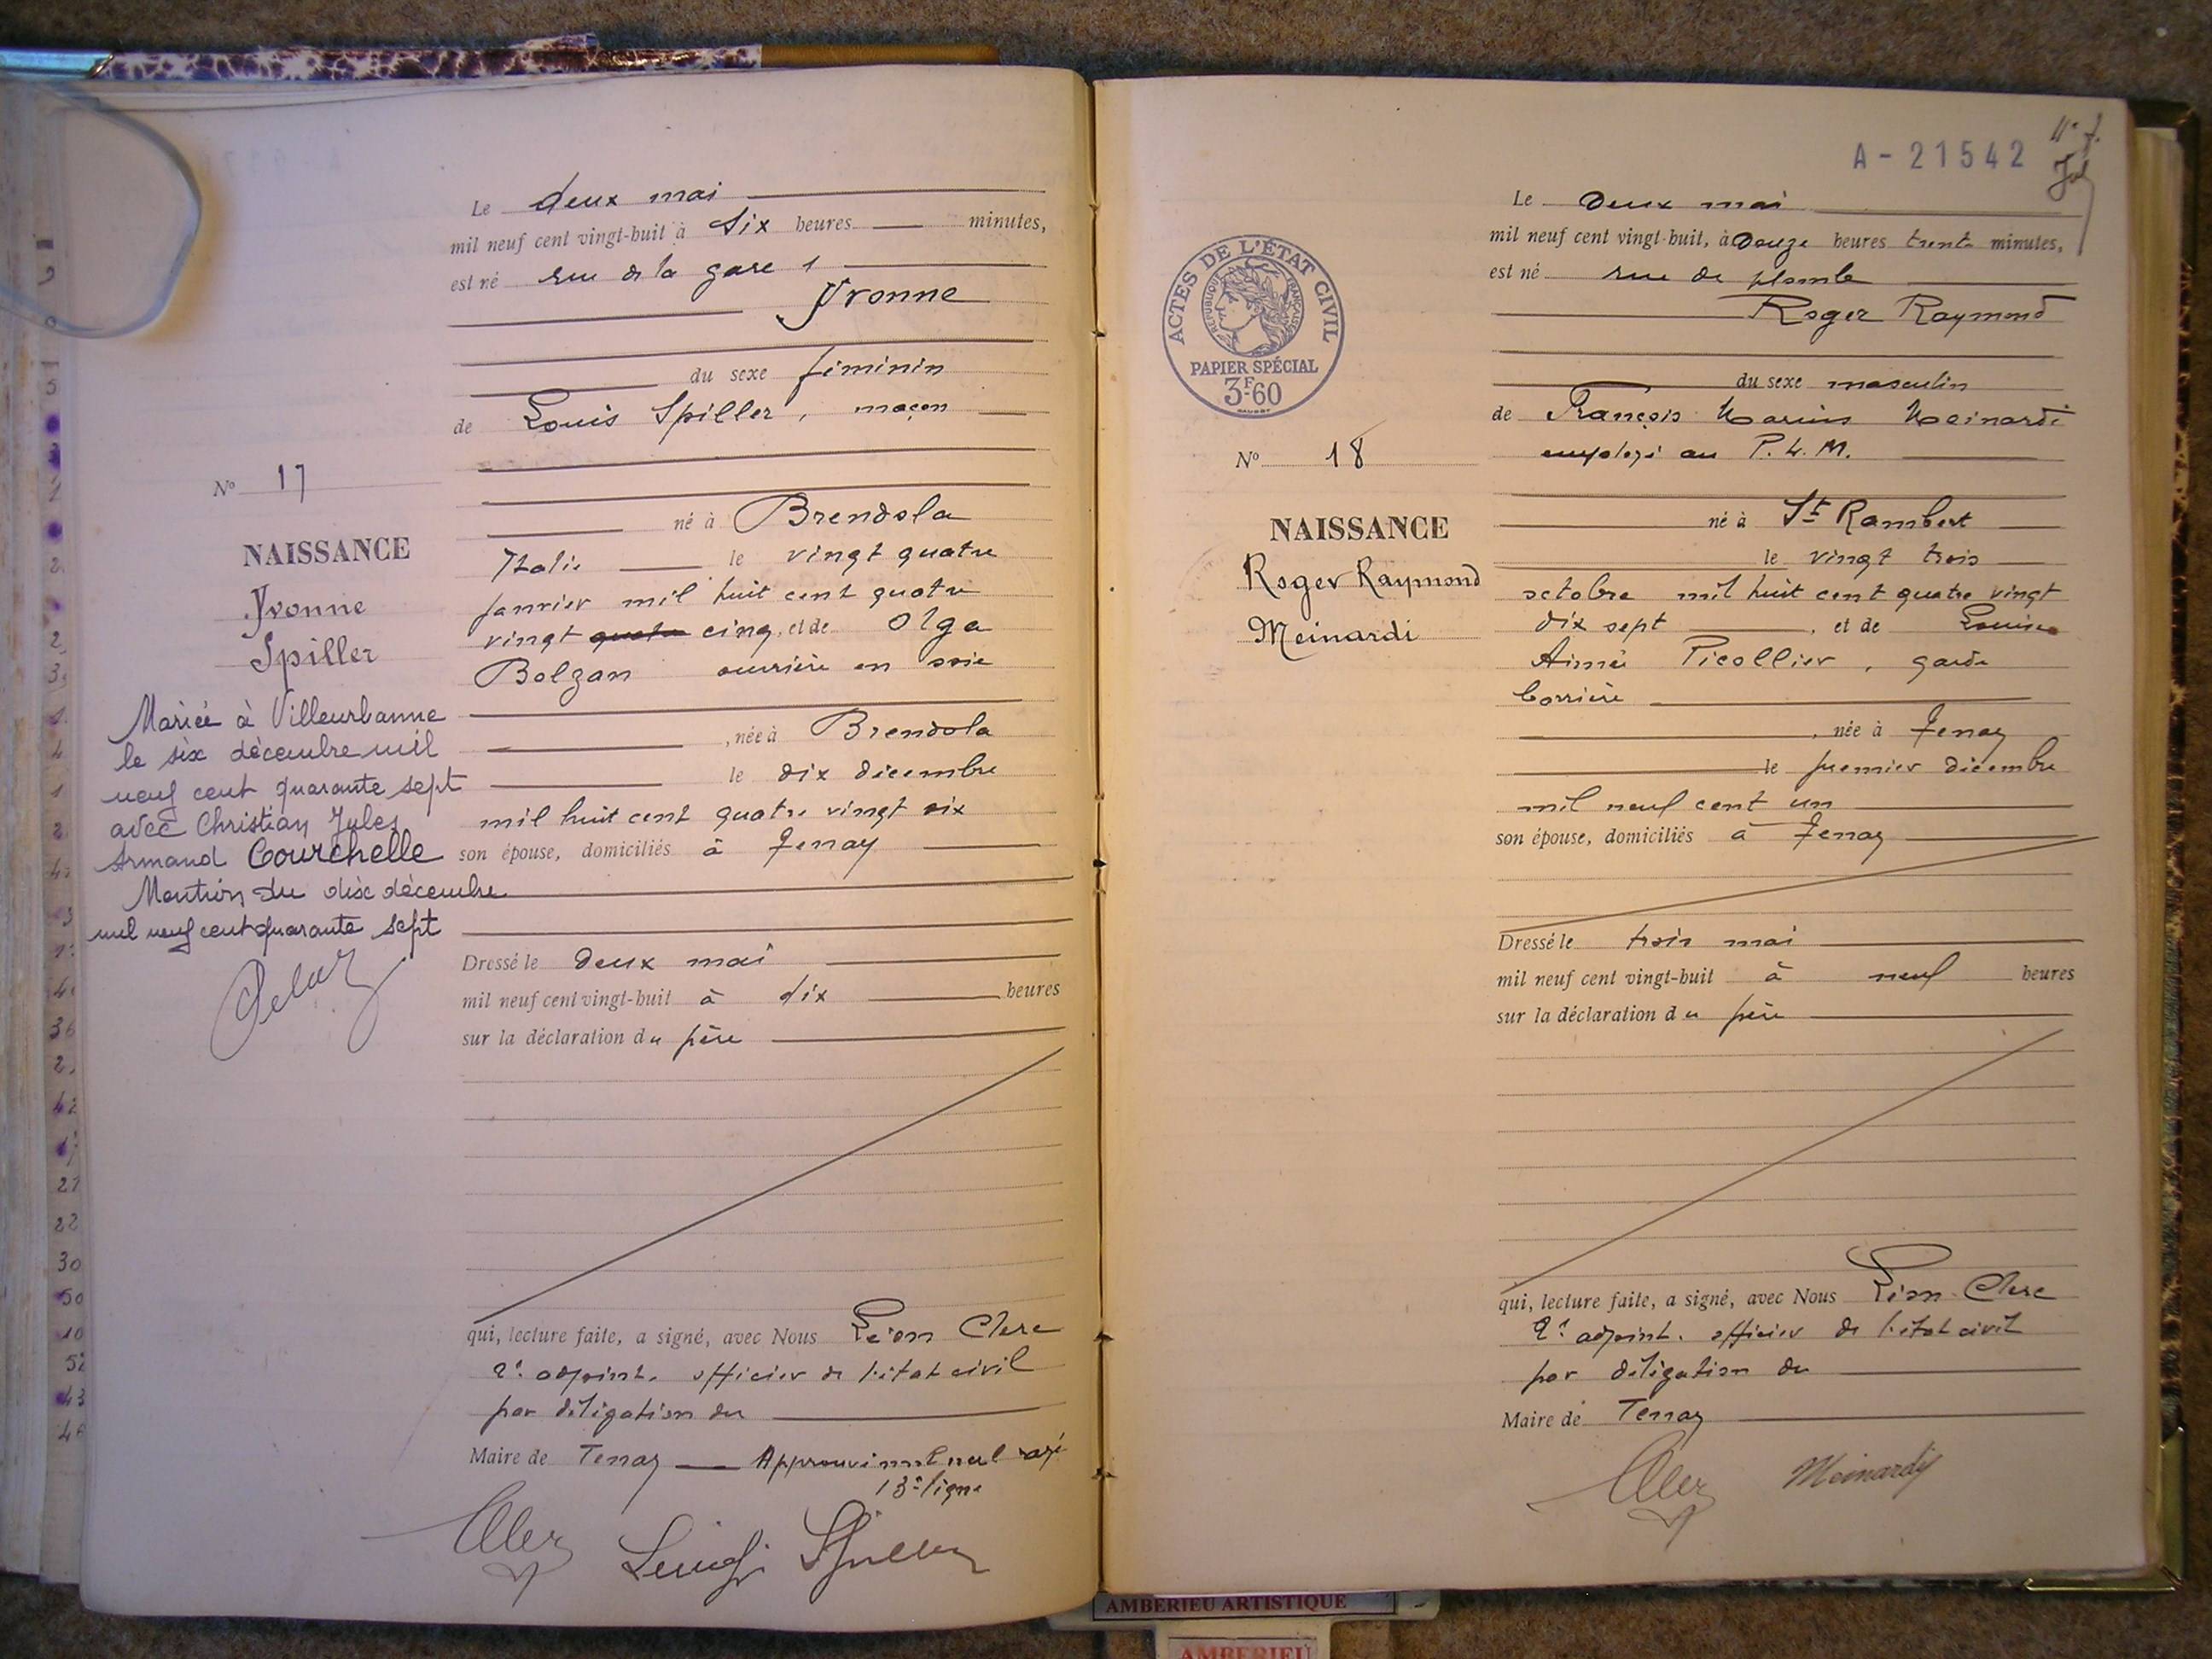 Le deux mai
mil neuf cent vingt-huit à six heures minutes,
est né rue de la gare 1
Yvonne
du sexe féminin
de Louis Spiller, maçon
né à Brendola
Italie le vingt quatre
janvier mil huit cent quatre
vingt quatre cinq, et de Olga
Bolzan ouvrière en soie
, née à Brendola
le dix décembre
mil huit cent quatre vingt six
son épouse, domiciliés à Tenay
Dressé le deux mai
mil neuf cent vingt-huit à dix heures
sur la déclaration du père
qui, lecture faite, a signé, avec Nous Léon Clerc
2e adjoint. officier de l'état civil
par délégation du
Maire de Tenay Approuvé un mot nul rayé
13e ligne
Luigi Spiller
No 17
NAISSANCE
Yvonne
Spiller
Mariée à Villeurbanne
le six décembre mil
neuf cent quarante sept
avec Christian Jules
Armand Courchelle
Mention du dix décembre
mil neuf cent quarante sept
A - 21542
ACTES DE L'ÉTAT CIVIL
RÉPUBLIQUE FRANÇAISE
PAPIER SPÉCIAL
3F.60
No 18
NAISSANCE
Roger Raymond
Meinardi
Le deux mai
mil neuf cent vingt-huit, à douze heures trente minutes,
est né rue de plomb
Roger Raymond
du sexe masculin
de François Marius Meinardi
employé au P. L. M.
né à St Rambert
le vingt trois
octobre mil huit cent quatre vingt
dix sept, et de Louise
Aimée Picollier, garde
barrière
, née à Tenay
le premier décembre
mil neuf cent un
son épouse, domiciliés à Tenay
Dressé le trois mai
mil neuf cent vingt-huit à neuf heures
sur la déclaration du père
qui, lecture faite, a signé, avec Nous Léon Clerc
2e adjoint. officier de l'état civil
par délégation du
Maire de Tenay
Meinardi
AMBERIEU ARTISTIQUE
AMBERIEU